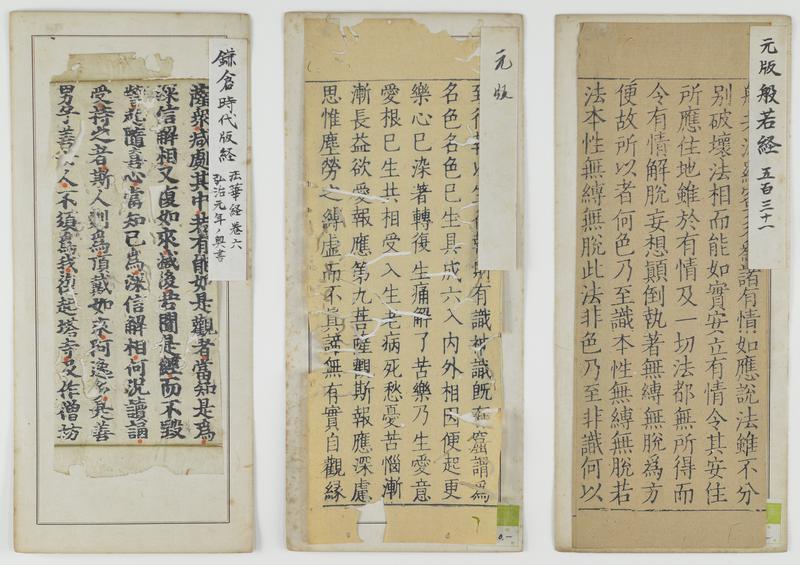 鎌倉時代版経
法華経 巻六
弘治元年ノ奥書
薩衆咸處其中若有能如是觀者當知是爲
深信解相又復如來滅後若聞是經而不毀
訾起隨喜心當知已爲深信解相何況讀誦
受持之者斯人則爲頂戴如來阿逸多是善
男子善人不須爲我復起塔寺及作僧坊
元版
有識識既在窟謂爲
名色名色已生具成六入內外相因便起更
樂心已染著轉復生痛解了苦樂乃生愛意
愛根已生共相受入生老病死愁憂苦惱漸
漸長益欲愛報應第九菩薩觀斯報應深慮
思惟塵勞之縛虛而不眞諦無有實自觀緣
元版般若経 五百三十一
諸有情如應說法雖不分
別破壞法相而能如實安立有情令其安住
所應住地雖於有情及一切法都無所得而
令有情解脫妄想顛倒執著無縛無脫爲方
便故所以者何色乃至識本性無縛無脫若
法本性無縛無脫此法非色乃至非識何以